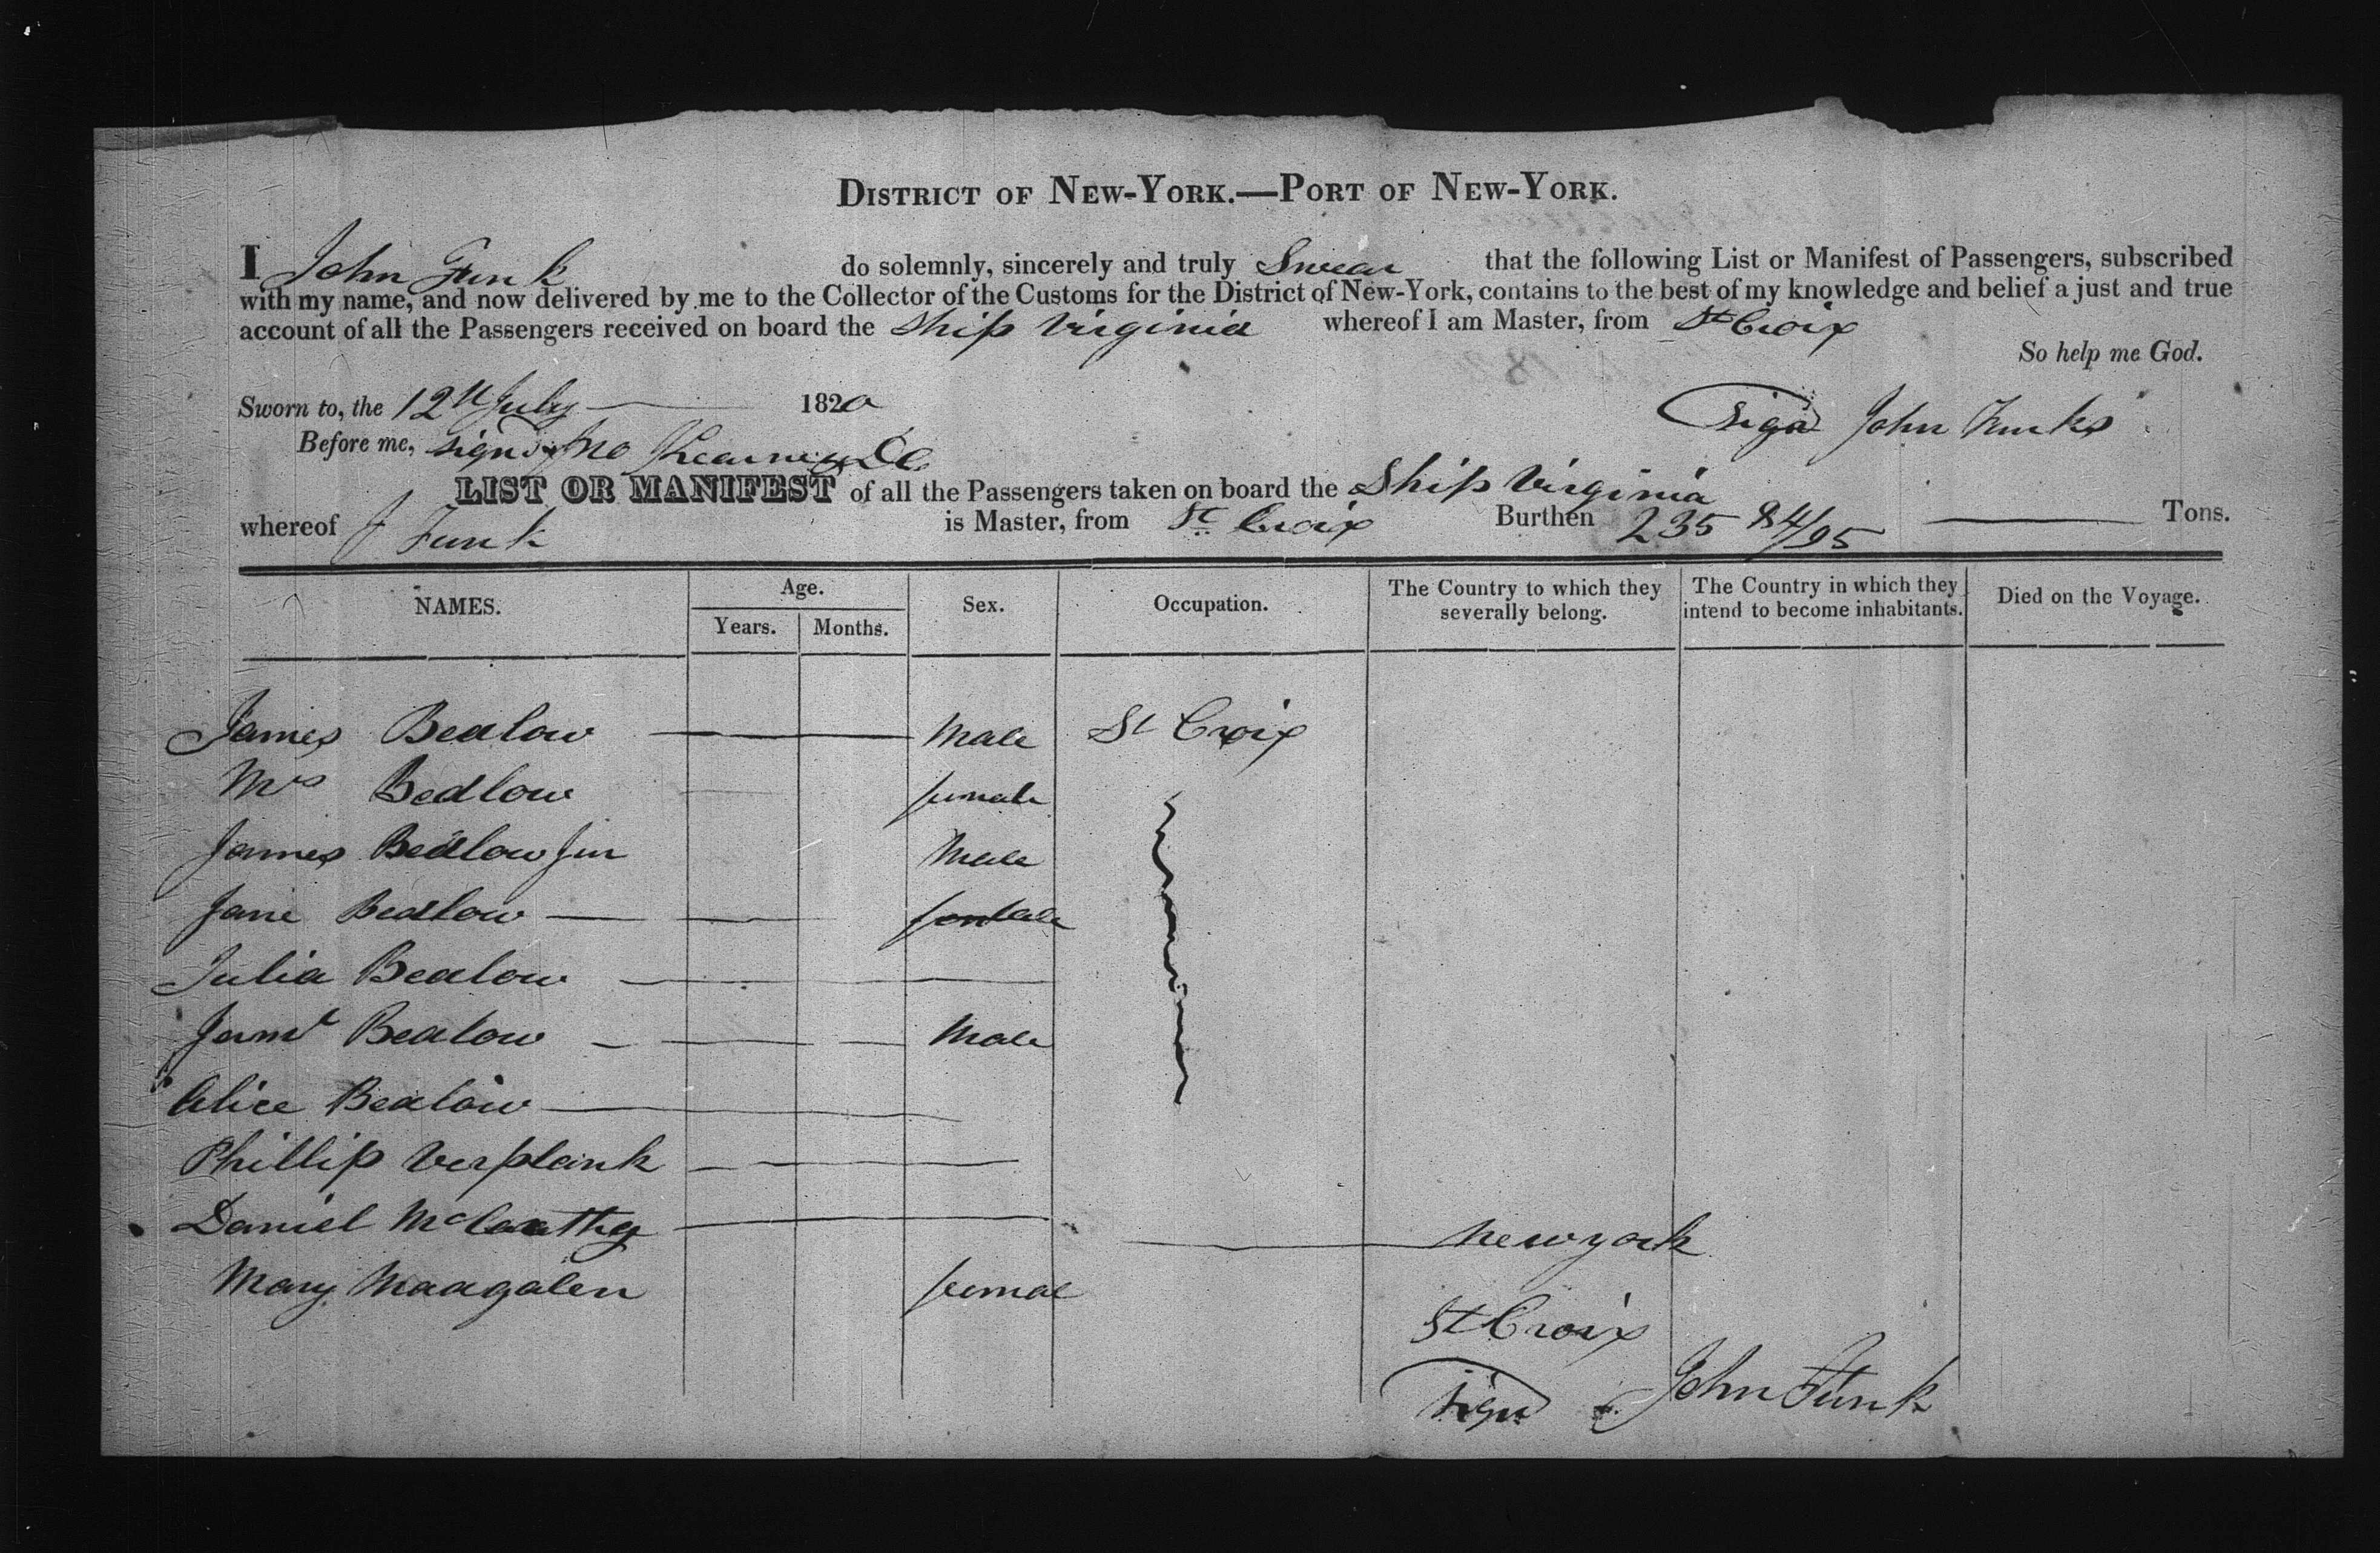 DISTRICT OF NEW-YORK.—PORT OF NEW-YORK.
I John Funk do solemnly, sincerely and truly Swear that the following List or Manifest of Passengers, subscribed
with my name, and now delivered by me to the Collector of the Customs for the District of New-York, contains to the best of my knowledge and belief a just and true
account of all the Passengers received on board the Ship Virginia whereof I am Master, from St Croix
So help me God.
Sworn to, the 12th July 1820
Sign'd John Funks
Before me, sign'd Jno Kearney DC
LIST OR MANIFEST of all the Passengers taken on board the Ship Virginia
whereof J Funk is Master, from St Croix Burthen 235 84/95 Tons.
NAMES. Age. Years. Months. Sex. Occupation. The Country to which they severally belong. The Country in which they intend to become inhabitants. Died on the Voyage.
James Bedlow Male St Croix
Mrs Bedlow female
James Bedlow Jun Male
Jane Bedlow female
Julia Bedlow
Bedlow Male
Alice Bedlow
Phillip Verplank
Daniel McCarthy New york
Mary Maagalen femal
St Croix
Sign John Funk